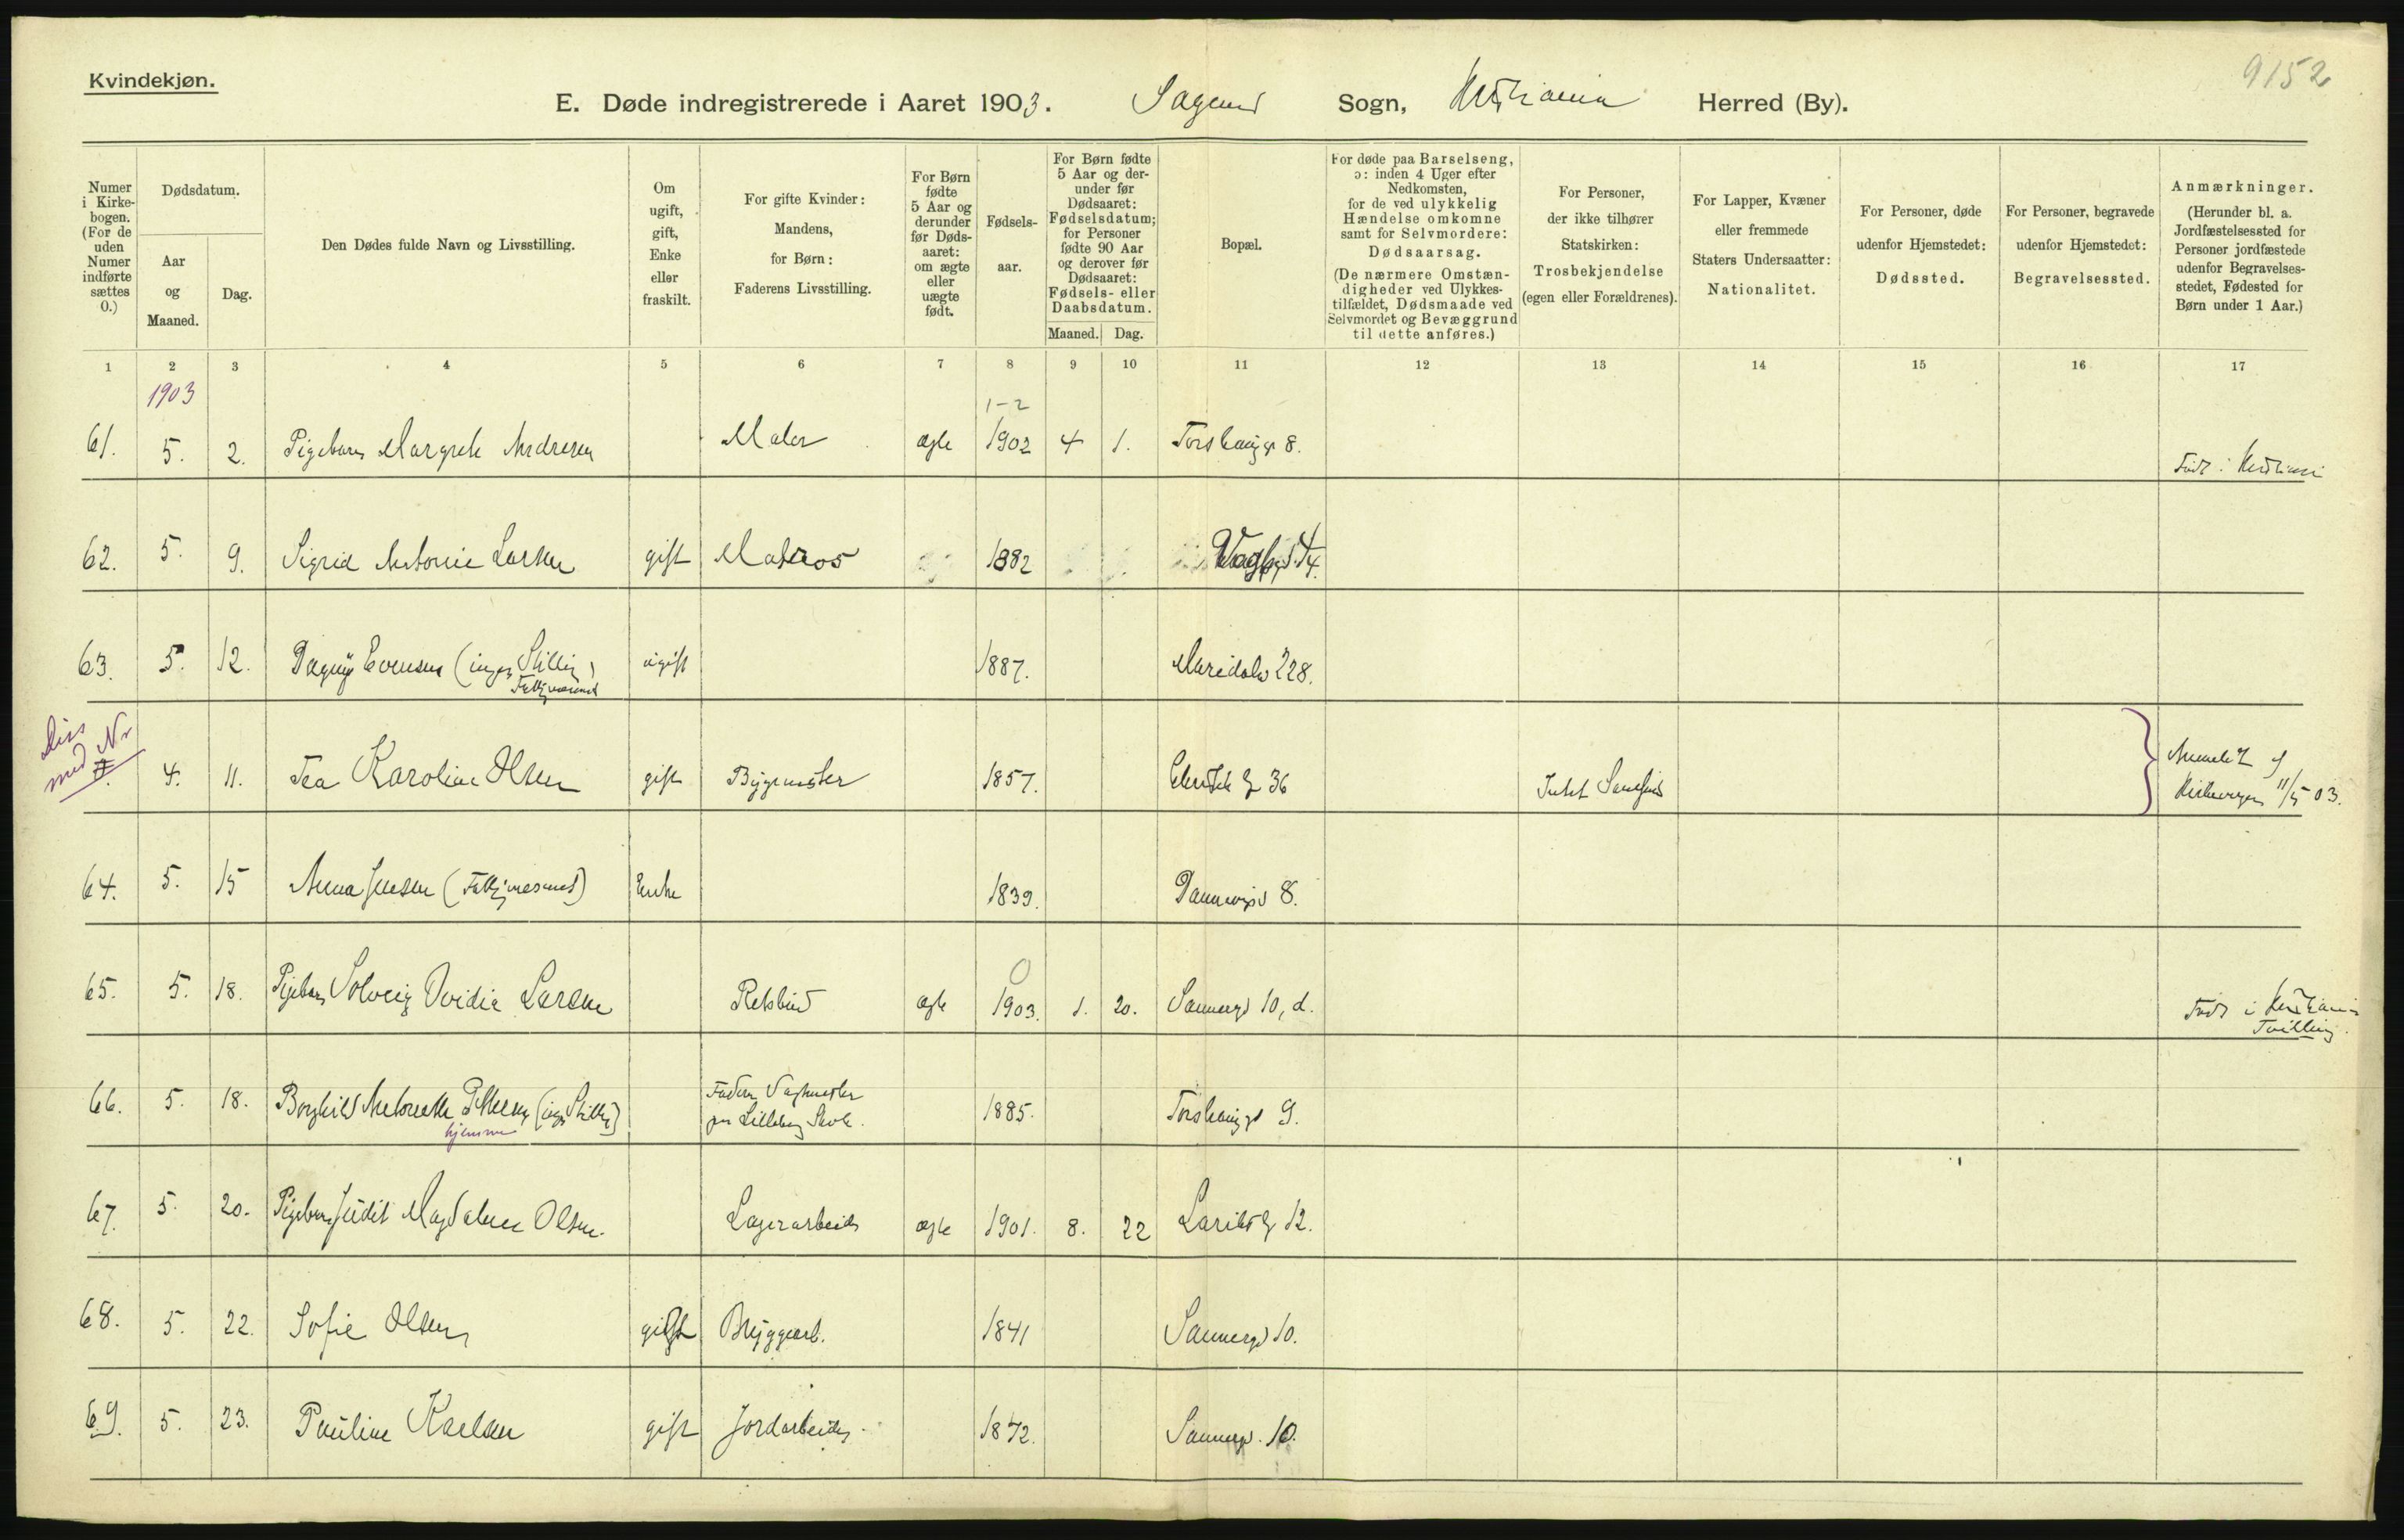 Kvindekjøn.
9152
E. Døde indregistrerede i Aaret 1903. Sagenes Sogn, Kristiania Herred (By).
Numer i Kirkebogen. (For de uden Numer indførte sættes 0.)
Dødsdatum.
Aar og Maaned.
Dag.
Den Dødes fulde Navn og Livsstilling.
Om ugift, gift, Enke eller fraskilt.
For gifte Kvinder: Mandens, for Børn: Faderens Livsstilling.
For Børn fødte 5 Aar og derunder før Dødsaaret: om ægte eller uægte født.
Fødselsaar.
For Børn fødte 5 Aar og derunder før Dødsaaret: Fødselsdatum; for Personer fødte 90 Aar og derover før Dødsaaret: Fødsels- eller Daabsdatum.
Maaned. Dag.
Bopæl.
For døde paa Barselseng, ɔ: inden 4 Uger efter Nedkomsten, for de ved ulykkelig Hændelse omkomne samt for Selvmordere: Dødsaarsag. (De nærmere Omstændigheder ved Ulykkestilfældet, Dødsmaade ved Selvmordet og Bevæggrund til dette anføres.)
For Personer, der ikke tilhører Statskirken: Trosbekjendelse (egen eller Forældrenes).
For Lapper, Kvæner eller fremmede Staters Undersaatter: Nationalitet.
For Personer, døde udenfor Hjemstedet: Dødssted.
For Personer, begravede udenfor Hjemstedet: Begravelsessted.
Anmærkninger. (Herunder bl. a. Jordfæstelsessted for Personer jordfæstede udenfor Begravelsesstedet, Fødested for Børn under 1 Aar.)
1 2 3 4 5 6 7 8 9 10 11 12 13 14 15 16 17
1903
1-2
61. 5. 2. Pigebarn Margrete Andresen Maler ægte 1902 4 1. Torshaugg 8. Født i Kristiania
62. 5. 9. Sigrid Antonie Larsen gift Matros 1882
63. 5. 12. Dagny Evensen (ingen Stilling) ugift 1887. Maridalsv 228.
Fattigunderst
med Nr
4. 11. Tea Karoline Olsen gift Bygmester 1857. 36 Anmeldt
11/5 03.
64. 5. 15 Anna Jensen Enke 1839. Dannevigsv 8.
0
65. 5. 18. Pigebarn Solveig Ovidia Larsen Retsbud ægte 1903. 1. 20. Sannergd 10, d. Født i Kristiania
Tvilling.
66. 5. 18. Borghild Antonette Pettersen (ingen Stilling) Faderen Vagtmester 1885. Torshauggd 9.
hjemme paa Lilleborg Skole.
67. 5. 20. Pigebarn Judit Magdalene Olsen. Lagerarbeider ægte 1901. 8. 22 12.
68. 5. 22. Sofie Olsen gift Bryggearb. 1841 Sannergd 10.
69. 5. 23. Pauline Karlsen gift Jordarbeider. 1872. Sannergd. 10.